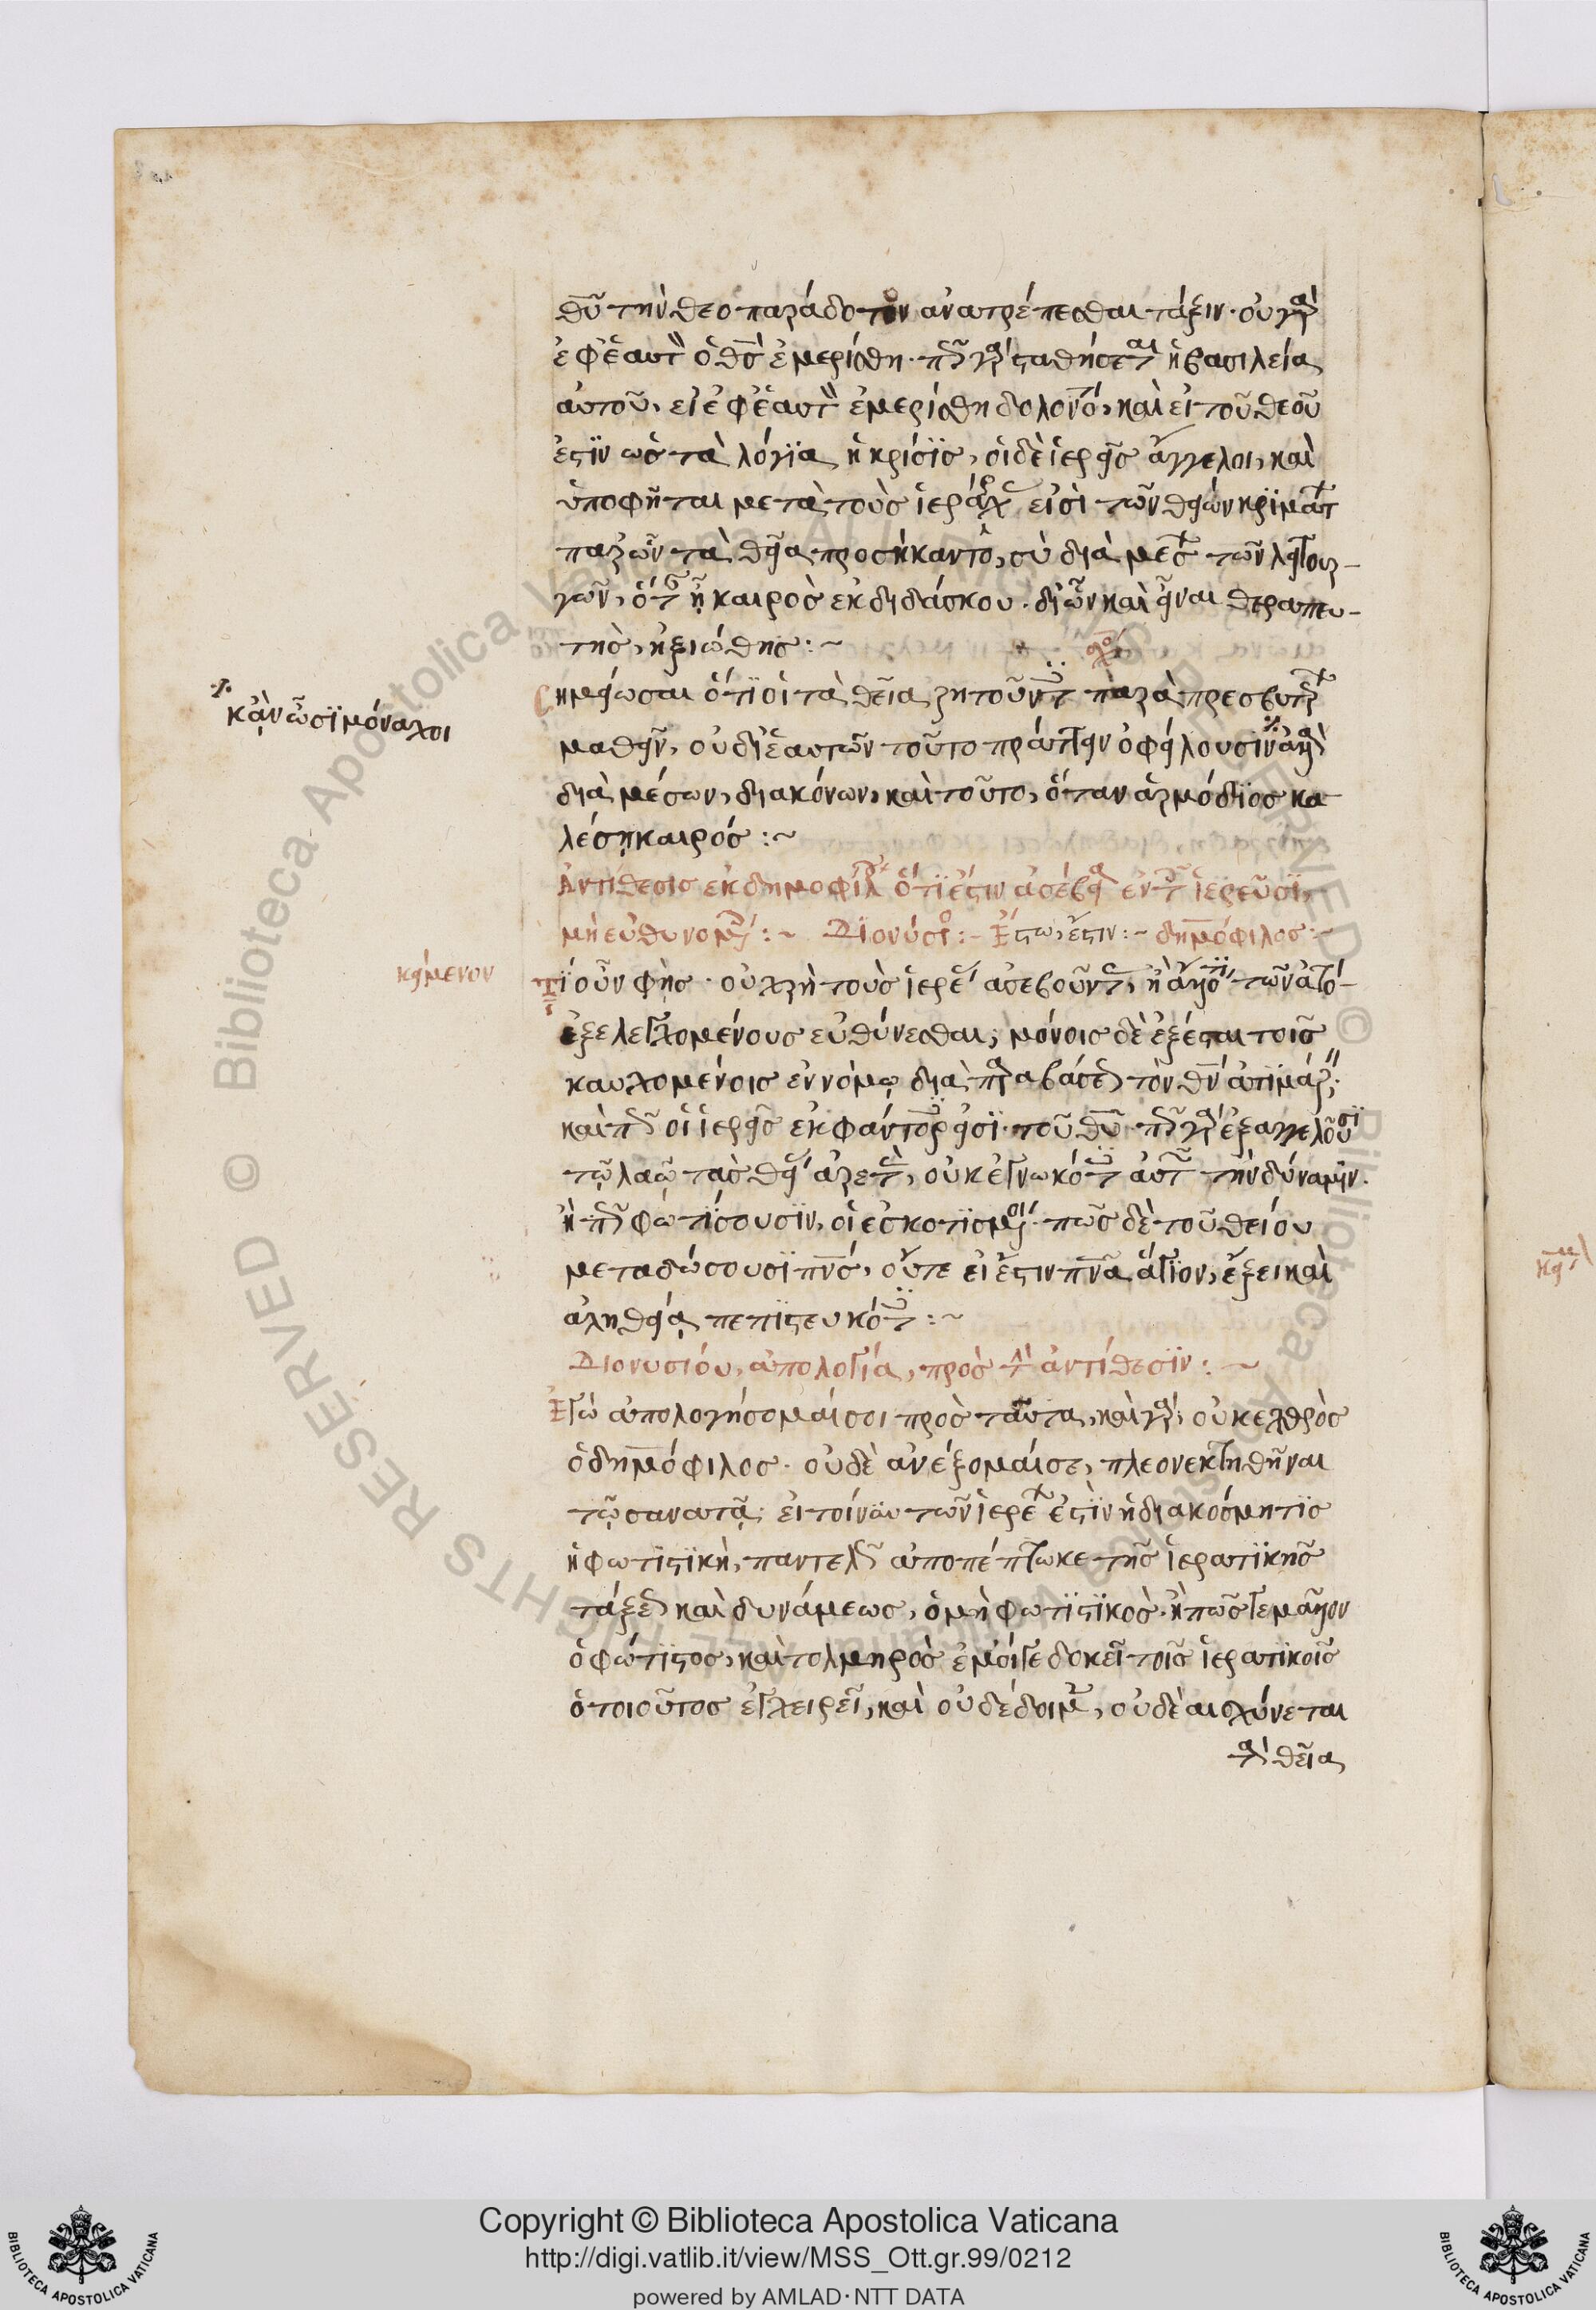 θῦ τὴν θεοπαράδοτον ἀνατρέπεσθαι τάξιν· οὐ γὰρ
ἐφ' ἑαυτὸν ὁ θς̄ ἐμερίσθη· πῶς γὰρ σταθήσεται ἡ βασιλεία
αὐτοῦ, εἰ ἐφ' ἑαυτὸν ἐμερίσθη καὶ εἰ τοῦ θεοῦ
ἐστϊν ὡς τὰ λόγϊα ἡ κρίσϊς, οἱ δὲ ἱερεῖς ἄγγελοι, καὶ
ὑποφῆται μετὰ τοὺς ἱεράρχας εἰσὶ τῶν θείων κρϊμάτων
παρ' ὧν τὰ θεῖα προσήκοντος, σὺ διὰ μέσων τῶν λειτουρ-
γῶν, ὅτε ᾖ καιρὸς ἐκδιδάσκου· δι' ὧν καὶ εἶναι θεραπευ-
τὴς, ἠξιώθης :~
σχόλιον
Σημείωσαι ὅτϊ οἱ τὰ θεῖα ζητοῦντες παρὰ πρεσβυτέρων
μαθεῖν, οὐ δι' ἑαυτῶν τοῦτο πράττειν ὀφείλουσϊν ἀλλὰ
κἂν ὦσϊ μόναχοι
διὰ μέσων, διακόνων, καὶ τοῦτο, ὅταν ἁρμόδϊος κα
λέσῃ καιρός :~
Ἀντίθεσις ἐκ δημοφίλου ὅτϊ ἔστιν ἀσέβεια ἐν τοῖς ἱερεῦσϊ,
μὴ εὐθυνομένη :~ Δϊονύσιος :- Ἔστω, ἔστιν :~ δημόφιλος :~
κείμενον
Τί οὖν φὴς· οὐ χρὴ τοὺς ἱερέας ἀσεβοῦντας, ἢ ἄλλο τϊ τῶν ἀτό-
ἐξελεγχομένους εὐθύνεσθαι; μόνοις δὲ ἐξέσται τοῖς
καυχομένοις ἐν νόμῳ διὰ παραβάσεως τὸν θν̄ ἀτϊμάζειν;
καὶ πῶς οἱ ἱερεῖς ἐκφάντορές εἰσϊ τοῦ θῦ· πῶς γὰρ ἐξαγγελοῦσϊ
τῷ λαῷ τὰς θείας ἀρετὰς, οὐκ ἐγνωκότες αὐτῶν τὴν δύναμϊν.
ἢ πῶς φωτϊσουσϊν, οἱ ἐσκοτϊσμένοι· πῶς δὲ τοῦ θείου
μεταδώσουσϊ πνς̄, οὔτε εἰ ἔστιν πνᾶ ἅγϊον, ἕξει καὶ
ἀληθείᾳ πεπϊστευκότες :~
Διονυσίου, ἀπολογία, πρὸς τὴν ἀντίθεσϊν :~
Ἐγὼ ἀπολογήσομαί σοι πρὸς ταῦτα, καὶ γὰρ, οὐκ ἐχθρὸς
ὁ δημόφιλος· οὐδὲ ἀνέξομαί σε, πλεονεκτηθῆναι
τῷ σανατᾷ; εἰ τοίνυν τῶν ἱερέων ἐστϊν ἡ διακόσμητϊς
ἡ φωτϊστϊκὴ, παντελῶς ἀποπέπτωκε τῆς ἱερατϊκῆς
τάξεως καὶ δυνάμεως, ὁ μὴ φωτϊστϊκὸς· ἢ πῶς γε μᾶλλον
ὁ φώτϊστος, καὶ τολμηρὸς ἐμοί γε δοκεῖ τοῖς ἱερατϊκοῖς
ὁ τοιοῦτος ἐγχειρεῖ, καὶ οὐ δέδοικε, οὐδὲ αἰσχύνεται
τὰ θεῖα
Copyright © Biblioteca Apostolica Vaticana
http://digi.vatlib.it/view/MSS_Ott.gr.99/0212
powered by AMLAD·NTT DATA
BIBLIOTECA APOSTOLICA VATICANA
BIBLIOTECA APOSTOLICA VATICANA